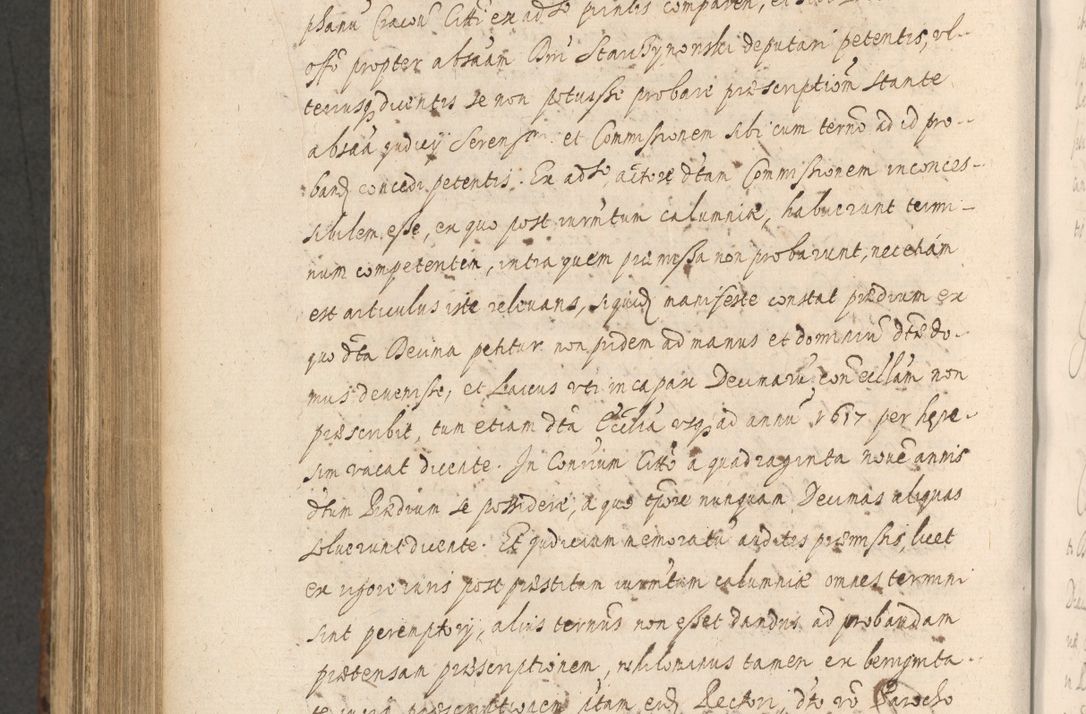 phanũ Cracoũ Citti ex adso principlis comparen, et
offo propter absãam Dni Starzynonski deputari petentis, vl-
teriusq dicentis se non potuisse probare præscriptiom̃ stante
absãa judicij Sereniss. et Commissionem sibi cum terno ad id pro-
band concedi petentis. Ex adso actore dtam Commissionem inconces-
sibilem esse, ex quo post iurmtum calumniæ, habuerunt termi-
num competentem, intra quem præmissa non probarunt, nec etiám
est articulus iste releuans, siquid manifeste constat prædium ex
quo dta Decima petitur non pridem ad manus et dominiũ dtæ do-
mus deuenisse, et Laicus vti incapax Decimarũ, con ecclam non
præscribit, tum etiam dta Ecclia usq ad annũ 1617 per hære-
sim vacat dicente. In Conuium Citto a quadraginta noue annis
dtum Prædium se possidere, a quo tpore nunquam Decimas aliquas
soluerunt dicente. Et judicium memoratũ auditis præmissis, licet
ex rigore iuris post præstitum iurmtum calumniæ omnes termini
sint peremptorij, alius ternus non esset dandus ad probandam
prætensam præscriptionem, nihilominus tamen ex benignita-
præscriptionem Rectori, dto Parocho